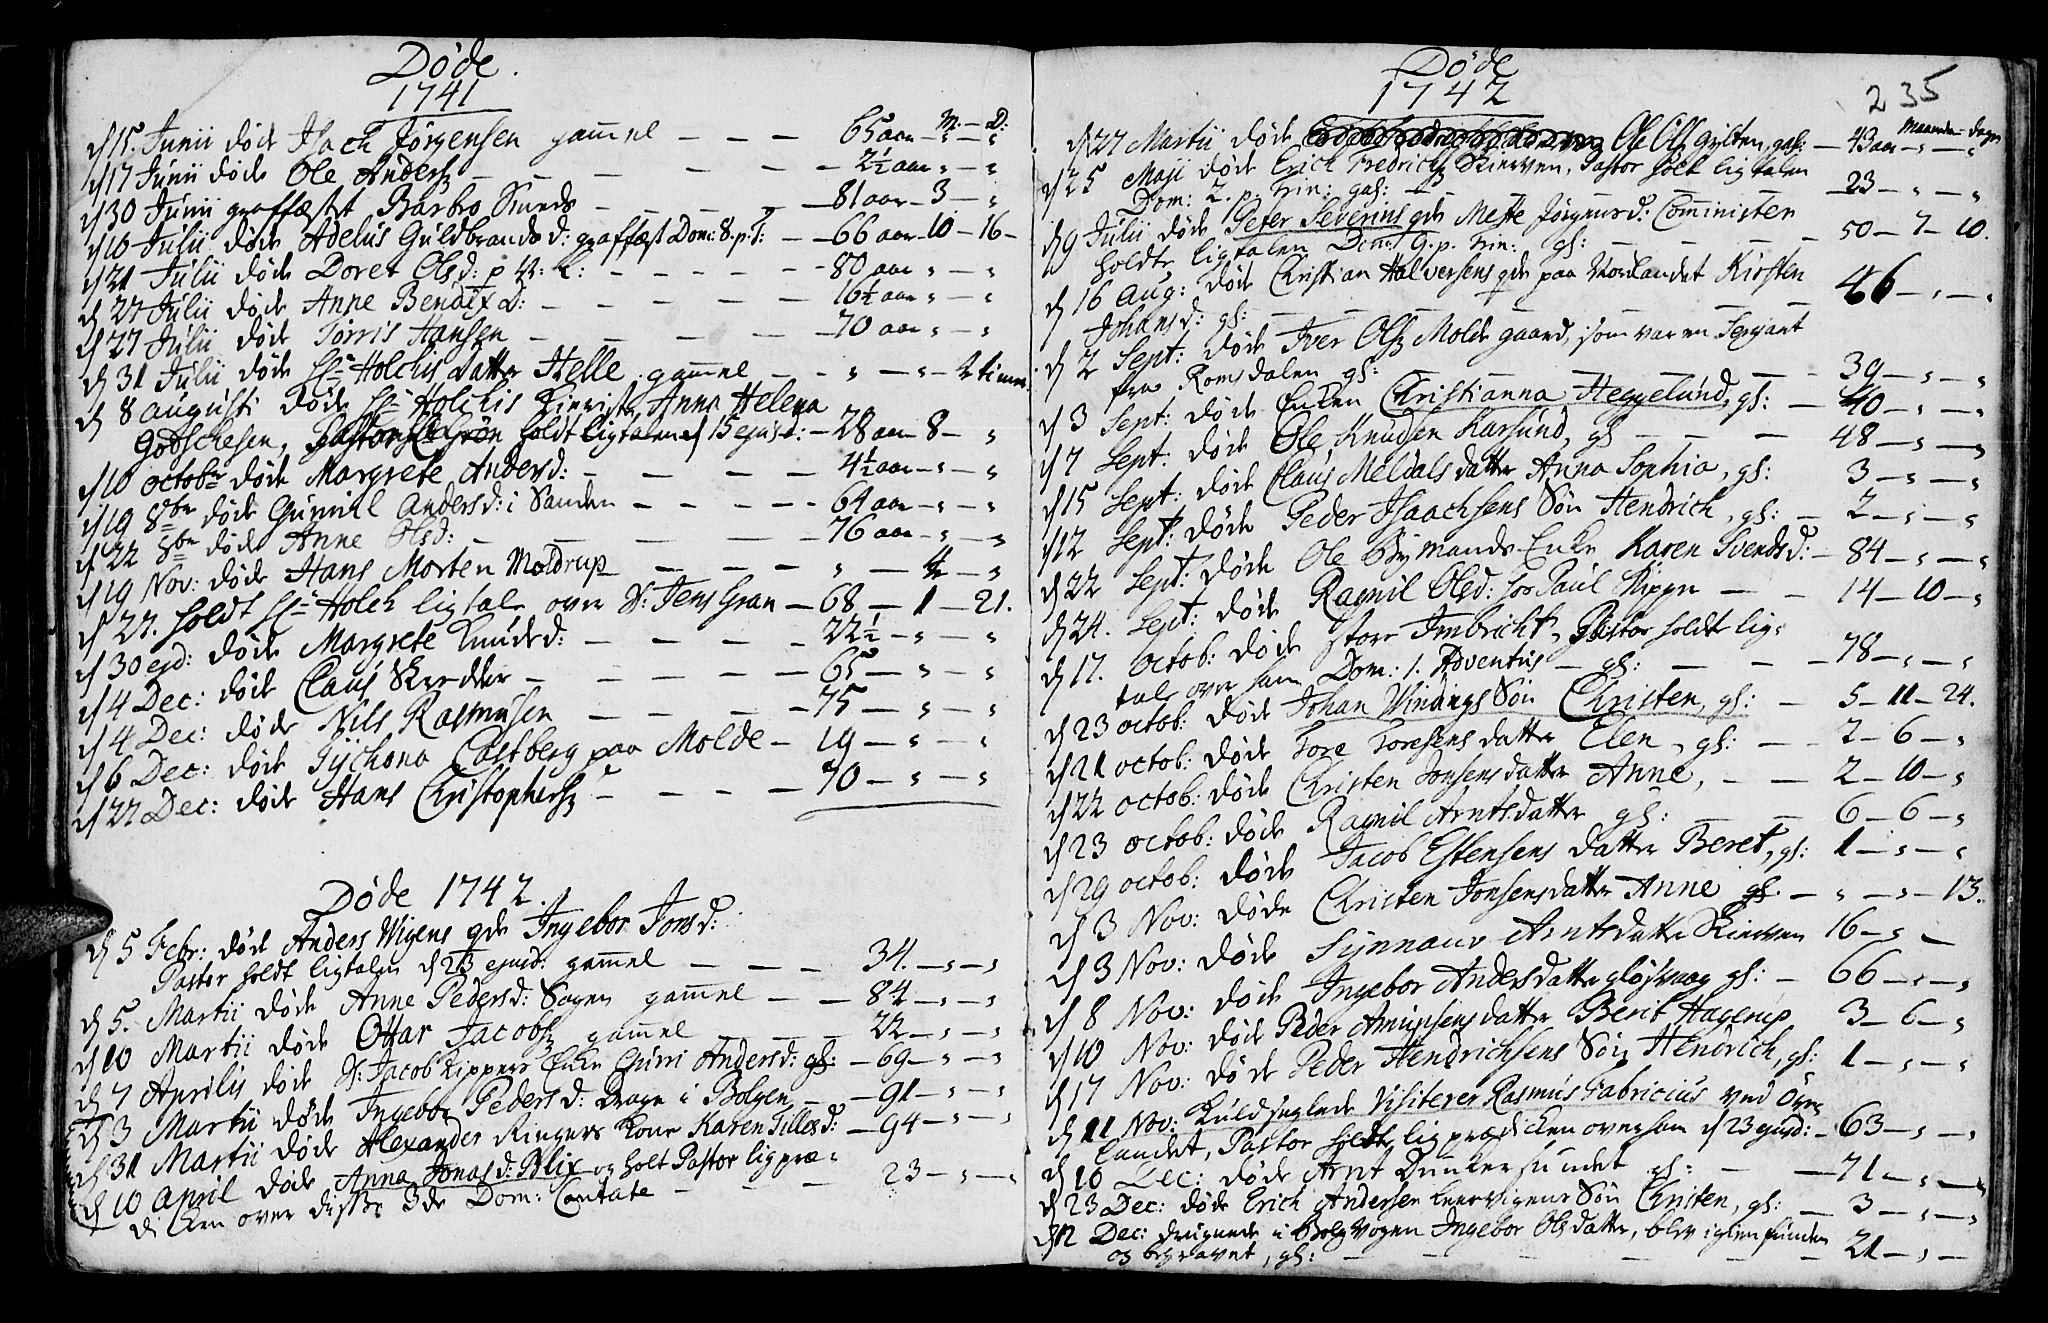 Døde.
1741
M: — D:
d 15. Junii døde Isach Jørgensen gam̄el — — — 65 aar „ — „
d 17 Junii døde Ole Anders — — — — — 2½ aar „ — „
d 30 Junii graffæstet Barbro Smeds — — — — 81 aar — 3 — „
d 10 Julii døde Adelus Guldbrandsd: graffæst Dom: 8. p. T: — 66 aar — 10 — 16 —
d 21 Julii døde Doret Olsd: — — — — 80 aar „ — „
d 27 Julii døde Anne Bendix D: — — — — 16½ aar „ — „
d 27 Julii døde Torris Hansen — — — — 70 aar „ — „
d 31 Julii døde Hr Holchis datter Helle gam̄el — — „ — „ — 2 timer
d 8 augusti døde Hr Holchis Kieriste Anna Helena
Godschesen, holdt ligtalen d 15 ejusd: — 28 aar — 8 — „
d 10 octobr døde Margrete Andersd: — — — 4½ aar — „ — „
d 19 8br døde Gunnil Andersd: i Sanden — — — 64 aar — „ — „
d 22 8br døde Anne Olsd: — — — — — 76 aar — „ — „
d 19 Nov: døde Hans Morten Moldrup — — — — „ — 4 — „
d 27. holdt Hr Holch ligtale over Jens Gran — 68 — 1 — 21.
d 30 ejd: døde Margrete Knudsd: — — — — 22½ — „ — „
d 4 Dec: døde Claus Skredder — — — — 65 — „ — „
d 4 Dec: døde Nils Rasmusen — — — — 75 — „ — „
d 6 Dec: døde Tychona Castberg paa Molde — 19 — „ — „
d 22 Dec: døde Hans Christophers — — — — 70 — „ — „
Døde 1742.
d 5 Febr: døde Anders Wigens qde Ingebor Jonsd:
Pastor holdt ligtalen d 23 ejusd: gam̄el — — — 34. — „ — „
d 5. Martii døde Anne Pedersd: gam̄el — — 84 — „ — „
d 10 Martii døde Ottar Jacobs gam̄el — — 22 — „ — „
d 7 Aprilis døde Jacob Kippers Enke Guri Andersd: gl: — 69 — „ — „
d 3 Martii døde Ingebor Pedersd: i Bolgen — — 91 — „ — „
d 31 Martii døde Alexander Ringers Kone Karen Tillesd: — 94 — „ — „
d 10 April døde Anna Jonasd: Blix og holt Pastor ligpræ=
diken over 3de Dom: Cantate — — — 23 — „ — „
Døde
1742
235
Maaneder — dage
d 27 Martii døde Ole Ols gylten, gal: — 43 aar — „ — „
d 25 Maji døde Erich Fredrichs Kierven, Pastor holt ligtalen
Dom: 2. p. Trin: gal: — — — 23 — „ — „
d 9 Julii døde Peter Severins qde Mette Jørgensd: Comministen
holdte ligtalen Domi 9. p. Trin: gl: — — — — 50 — 7 — 10.
d 16 Aug: døde Christian Halvorsens qde paa Norlandet Kirsten
Johansd: gl: — — — — 46 — „ — „
d 2 Sept: døde Iver Ols Molde gaard, som var en Sergant
fra Romsdalen gl: — — — — 39 — „ — „
d 3 Sept: døde Enken Christianna Heggelund, gl: — 40 — „ — „
d 7 Sept: døde Ole Knudsen Karsund, gl — — — 48 — „ — „
d 15 Sept: døde Claus Meldals datter Anna Sophia, gl: 3 — „ — „
d 12 Sept: døde Peder Isaachsens Søn Hendrich, gl: — 2 — „ — „
d 22 Sept: døde Ole Bymands Enke Karen Svendsd: — 84 — „ — „
d 24. Sept: døde Ragnil Olsd: hos Paul Kippe — — 14 — 10 — „
d 17. octob: døde store Imbricht, Pastor holdt lig=
tale over ham Dom: 1. Adventus — gl: — — — 78 — „ — „
d 23 octob: døde Johan Windings Søn Christen, gl: — 5 — 11 — 24.
d 21 octob: døde Tore Toresens datter Elen, gl: — — 2 — 6 — „
d 22 octob: døde Christen Jonsens datter Anne, — — 2 — 10 — „
d 23 octob: døde Ragnil Arntsdatter gl: — — 6 — 6 — „
d 29 octob: døde Jacob Estensens datter Beret, gl: 1 — „ — „
d 3 Nov: døde Christen Jonsens datter Anne gl — „ — „ — 13.
d 3 Nov: døde Synnauv Arntsdatter Kierven 16 — „ —
d 8 Nov: døde Ingebor Andersdatter gløsvaag gl: — 66 — „ — „
d 10 Nov: døde Peder Amupsens datter Berit Hagerup 3 — 6 — „
d 17 Nov: døde Peder Hendrichsens Søn Hendrich, gl: 1 — „ — „
d 11 Nov: Kuldseglede Visiterer Rasmus Fabricius ved Øre=
landet, Pastor holdte ligprædicken over ham d 23 ejusd: — 63 — „ — „
d 10 Dec: døde Arnt Dunkersundet gl: — — 71 — „ — „
d 23 Dec: døde Erich Andersen Leervigens Søn Christen, gl: — 3 — „ — „
d 12 Dec: druknede i Bolgvogen Ingebor Olsdatter, blev igien funden
og begravet, gl: — — — — 21 — „ —